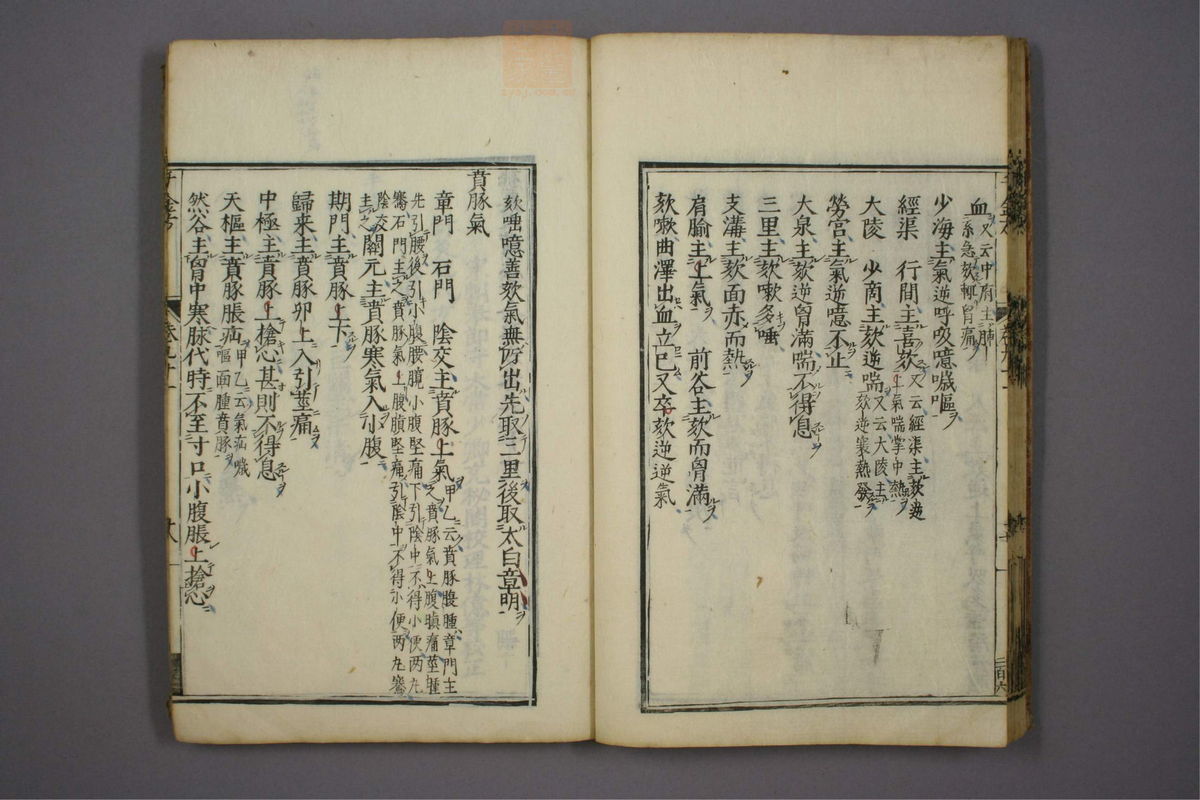 血又云中府主肺系急欬輒胷痛
少海主氣逆呼吸噫噦嘔
經渠 行間主喜欬又云經渠主欬逆上氣喘掌中熱
大陵 少商主欬逆喘又云大陵主欬逆寒熱發
勞宮主氣逆噫不止
大泉主欬逆胷滿喘不得息
三里主欬嗽多唾
支溝主欬面赤而熱
肩腧主上氣 前谷主欬而胷滿
欬嗽曲澤出血立已又卒欬逆逆氣
二百六
欬咄噫善欬氣無所出先取三里後取太白章明
賁豚氣
章門 石門 陰交主賁豚上氣甲乙云賁豚腹腫章門主之賁豚氣上腹䐜痛莖腫
先引腰後引小腹腰髖小腹堅痛下引陰中不得小便兩丸騫石門主之賁豚氣上腹䐜堅痛引陰中不得小便兩丸騫
陰交主之關元主賁豚寒氣入小腹
期門主賁豚上下
歸来主賁豚卵上入引莖痛
中極主賁豚上搶心甚則不得息
天樞主賁豚脹疝甲乙云氣疝噦嘔面腫賁豚
然谷主胷中寒脉代時不至寸口小腹脹上搶心